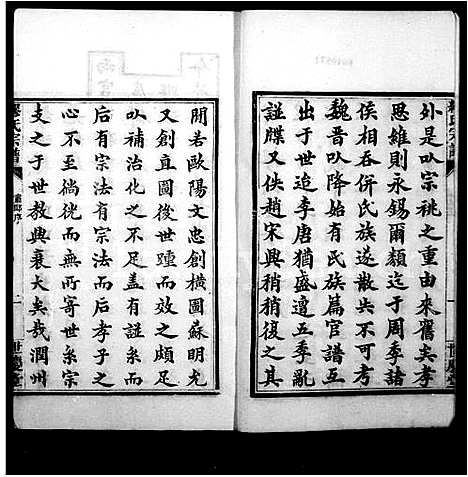 外是㕥宗祧之重由來舊矣孝
思維則永錫爾類迄于周季諸
侯相吞併氏族遂散失不可考
魏晋㕥降始有氏族篇官譜互
出于世迨李唐猶盛遭五季亂
諩牒又佚趙宋興稍稍復之其
間若歐陽文忠創横圖蘇明允
又創直圖後世踵而效之頗足
㕥補治化之不足盖有諩系而
後有宗法有宗法而后孝子之
心不至徜恍而無所寄世系宗
支之于世教興衰大矣哉潤州
氏宗譜
舊邸序
二
世慶堂